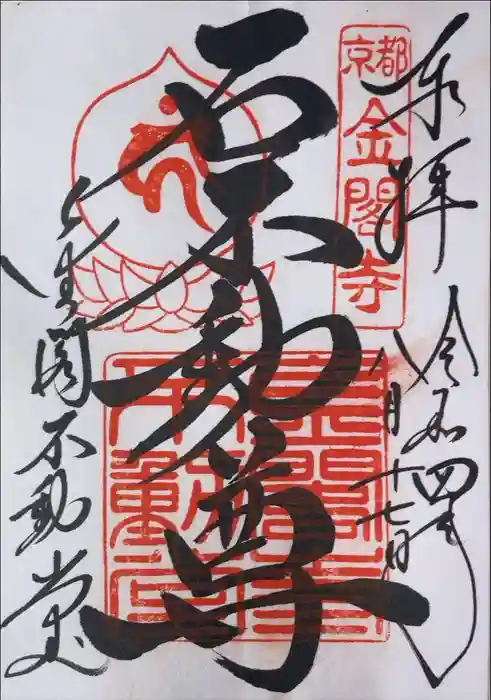 奉拝
令和四年
八月十七日
京都
金閣寺
石不動尊
金閣不動堂